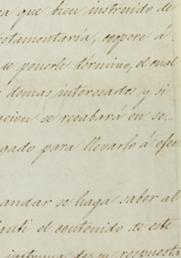 que bien instruido de
estamentaría, coopere á
de ponerle término, el cual
demas interesados, y si
acion se recabará en se-
gado para llevarlo á efec
andar se haga saber al
el contenido de este
respuesta